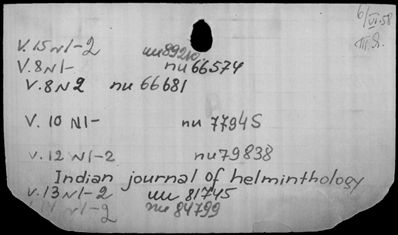 6/VI.58
V.15 N1-2 nu 89210
V.8 N1- nu 66574
V.8 N2 nu 66681
V. 10 N1- nu 77945
V.12 N1-2 nu 79838
Indian journal of helminthology
V.13 N1-2 nu 81745
V.14 N1-2 nu 84799